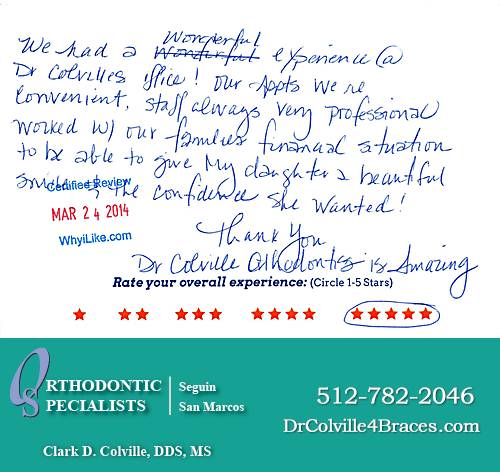 Wonderful
We had a Wonderful experience @
Dr Colvilles office! our Appts were
Convenient, staff always very professional
worked w/ our families financial situation
to be able to give My daughter a beautiful
smile & the confidence she wanted!
Certified Review
MAR 24 2014
WhyiLike.com
Thank You
Dr Colville Orthodontics is Amazing
Rate your overall experience: (Circle 1-5 Stars)
ORTHODONTIC
SPECIALISTS
Seguin
San Marcos
512-782-2046
DrColville4Braces.com
Clark D. Colville, DDS, MS